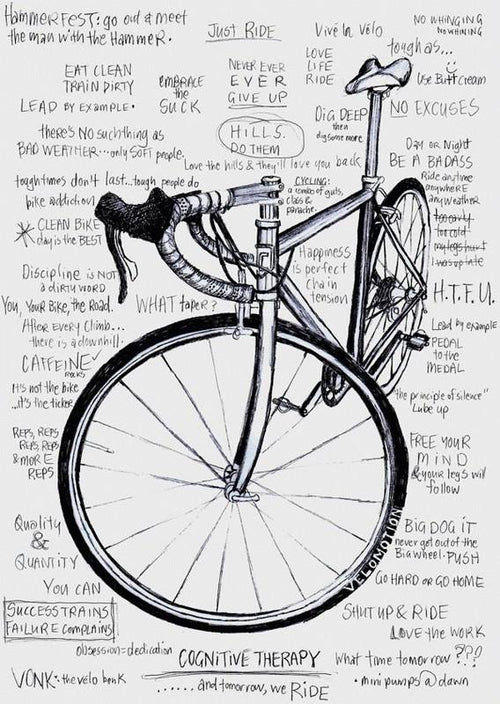 HAMMERFEST: go out & meet
the man with the HAMMER.
JUST RIDE
Vivé la Vélo
NO WHINGING
NOWHINING
LOVE
LIFE
RIDE
tough as...
Use Butt Cream
EAT CLEAN
TRAIN DIRTY
EMBRACE
the
SUCK
NEVER EVER
EVER
GIVE UP
LEAD BY EXAMPLE.
DIG DEEP
then
dig some more
NO EXCUSES
there's NO such thing as
BAD WEATHER...only SOFT people
HILLS.
DO THEM
Love the hills & they'll love you back
DAY OR Night
BE A BADASS
Ride anytime
anywhere
any weather
too early
too cold
my legs hurt
I was up late
tough times don't last...tough people do
bike addiction
CYCLING:
a combo of guts,
class &
panache.
CLEAN BIKE
day is the BEST
Happiness
is perfect
chain
tension
Discipline is NOT
a DIRTY WORD
H.T.F.U.
You, Your Bike, the Road.
WHAT taper?
After Every Climb...
there is a downhill.
Lead by example
PEDAL
to the
MEDAL
CAFFEINE
ROCKS
It's not the bike
...it's the ticker
"the principle of silence"
Lube up
REPS, REPS
REPS, REPS
& MORE
REPS
FREE YOUR
MIND
& your legs will
follow
Quality
&
QUANTITY
BIG DOG IT
never get out of the
Big wheel. PUSH
VELOMOTION
GO HARD OR GO HOME
YOU CAN
SUCCESS TRAINS
FAILURE COMPLAINS
SHUT UP & RIDE
LOVE the WORK
obsession=dedication
COGNITIVE THERAPY
What time tomorrow ???
VONK: the vélo bonk
...... and tomorrow, we RIDE
• mini pumps @ dawn